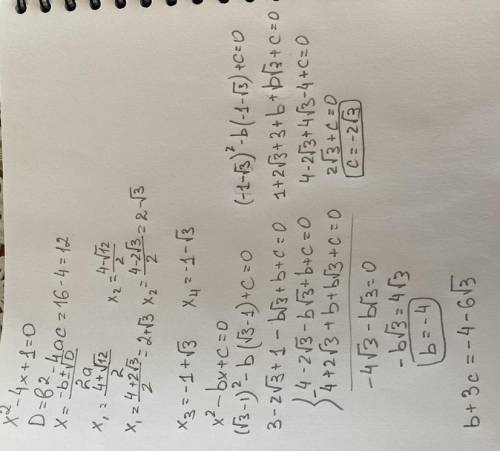 x² - 4x + 1 = 0
D = b² - 4ac = 16 - 4 = 12
x = (-b ± √D)/2a
x₁ = (4+√12)/2 x₂ = (4-√12)/2
x₁ = (4+2√3)/2 = 2+√3 x₂ = (4-2√3)/2 = 2-√3
x₃ = -1+√3 x₄ = -1-√3
x² - bx + c = 0
(√3-1)² - b(√3-1) + c = 0
3 - 2√3 + 1 - b√3 + b + c = 0
{ 4 - 2√3 - b√3 + b + c = 0
4 + 2√3 + b + b√3 + c = 0
-4√3 - b√3 = 0
-b√3 = 4√3
b = -4
(-1-√3)² - b(-1-√3) + c = 0
1 + 2√3 + 3 + b + b√3 + c = 0
4 - 2√3 + 4√3 - 4 + c = 0
2√3 + c = 0
c = -2√3
b + 3c = -4 - 6√3